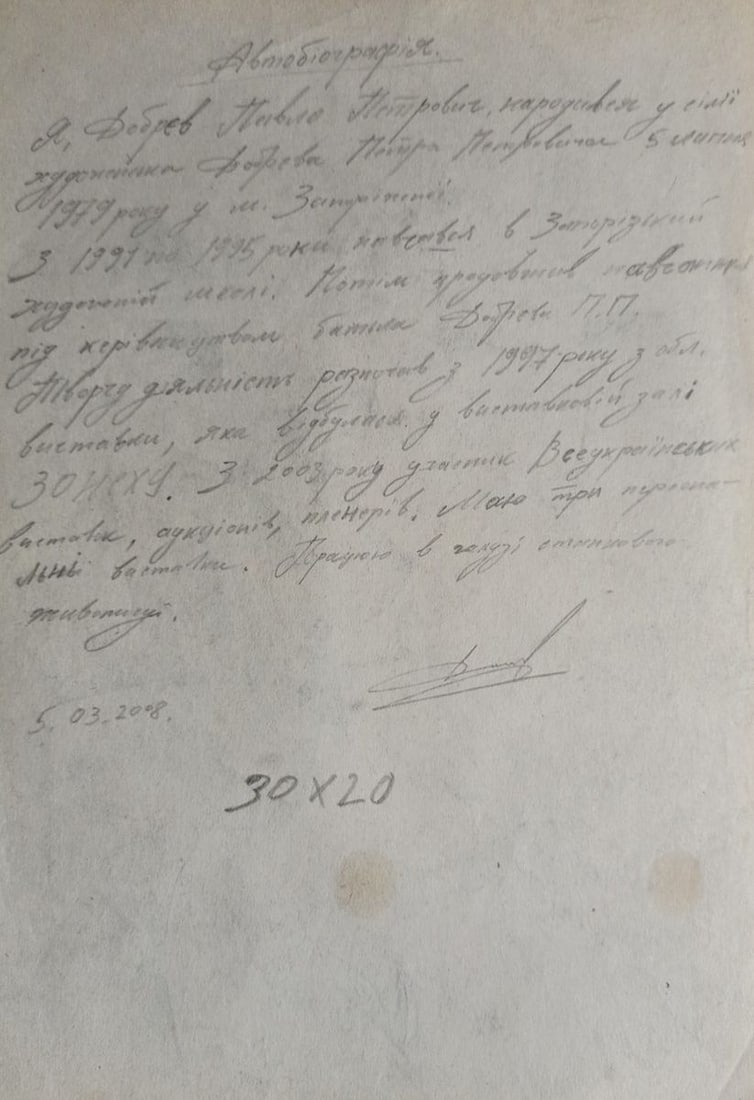 Автобіографія.
Я, Добрєв Павло Петрович, народився у сім'ї
художника Добрєва Петра Петровича 5 липня
1979 року у м. Запоріжжі.
З 1991 по 1995 роки навчався в Запорізький
художній школі. Потім продовжив навчання
під керівництвом батька Добрєва П.П.
Творчу діяльність розпочав з 1997 року з обл.
виставки, яка відбулася у виставковій залі
ЗОНСХУ. З 2003 року участик Всеукраїнських
виставок, аукціонів, пленерів. Маю три персона-
льні виставки. Працюю в галузі станкового
живопису.
5.03.2008.
30 X 20